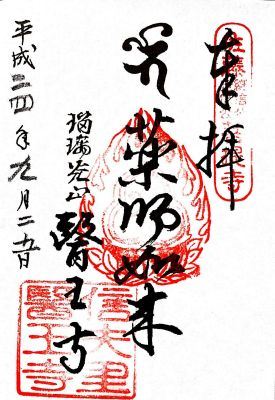 奉拝
薬師如来
瑠璃光山
醫王寺
平成二四年九月二五日
醫王寺